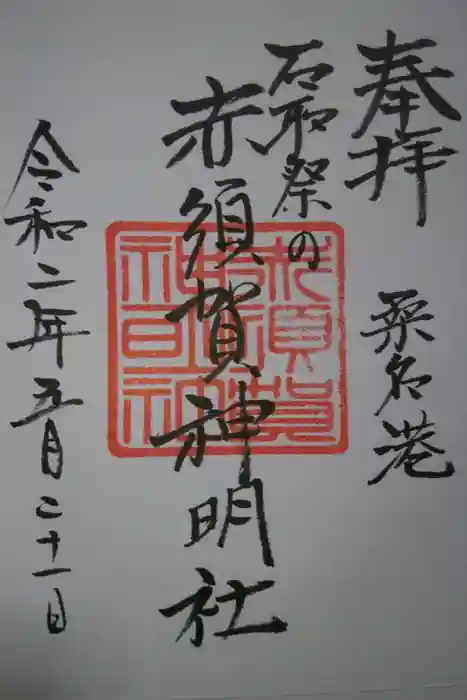 奉拝
桑名港
石取祭の
赤須賀神明社
令和二年五月二十一日
赤須賀神明社印